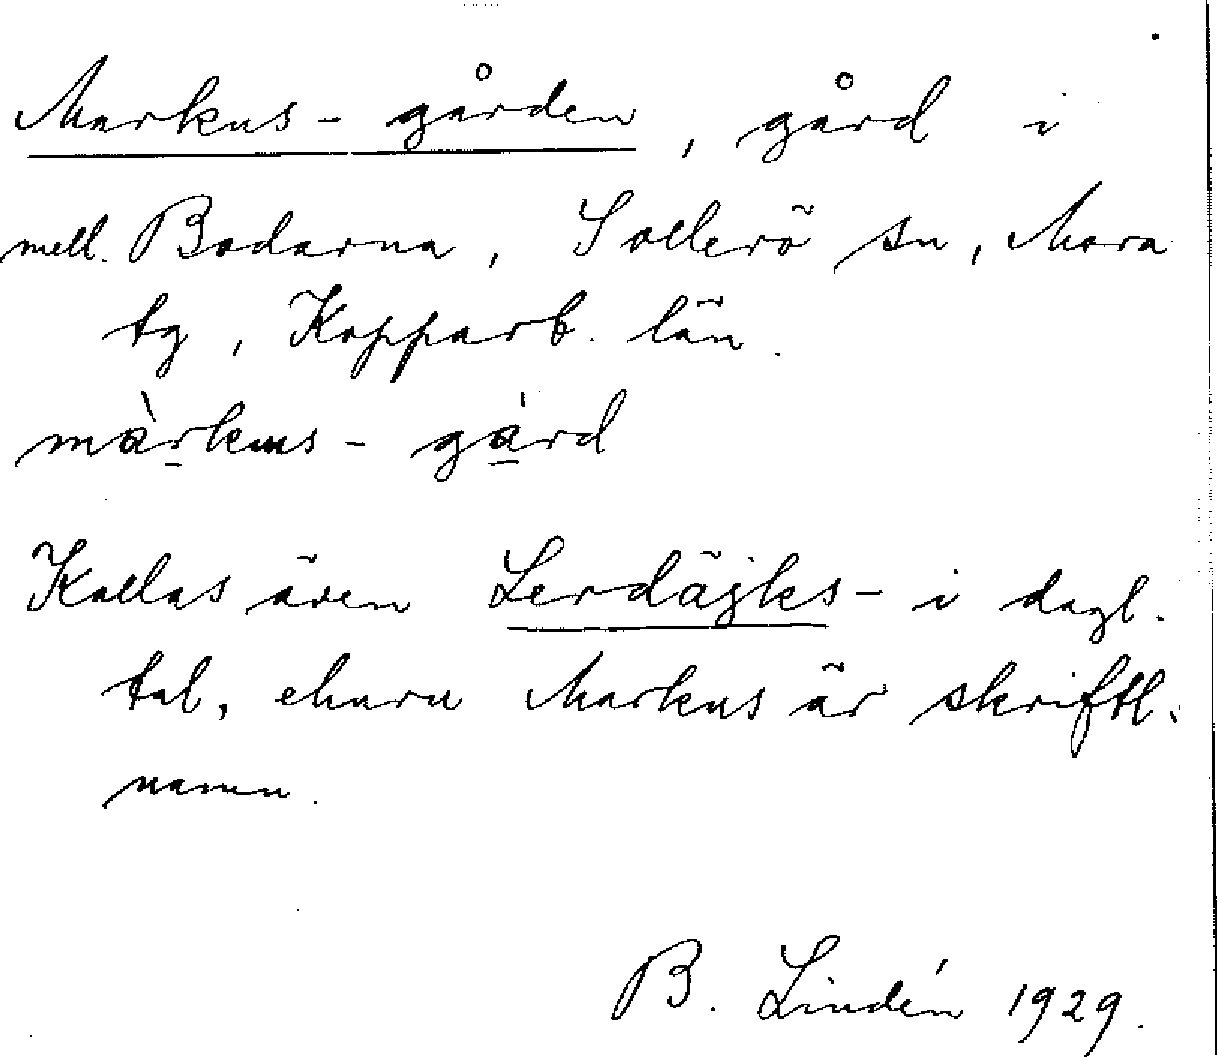 Markus-gården, gård i
mell. Bodarna, Sollerö sn, Mora
tg, Kopparb. län.
màrkus-gárd
Kallas även Lerdäjks- i dagl.
tal, ehuru Markus är skriftl.
namn.
B. Lindén 1929.